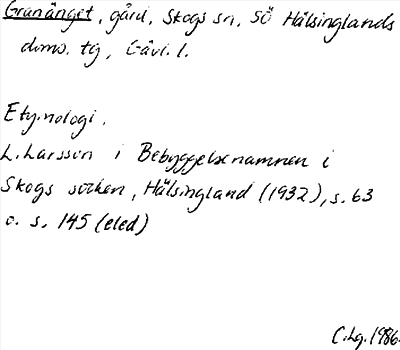 Granänget, gård, Skogs sn, Sö Hälsinglands
doms. tg, Gävl. l.
Etymologi.
L. Larsson i Bebyggelsenamnen i
Skogs socken, Hälsingland (1932), s. 63
o. s. 145 (eled)
C. Lg. 1986.